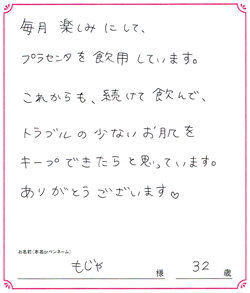 毎月 楽しみ にして、
プラセンタを 飲用 しています。
これからも、続けて 飲んで、
トラブルの 少ない お肌を
キープ できたら と思っています。
ありがとう ございます♡
お名前（本名orペンネーム）
もじゃ 様 32 歳